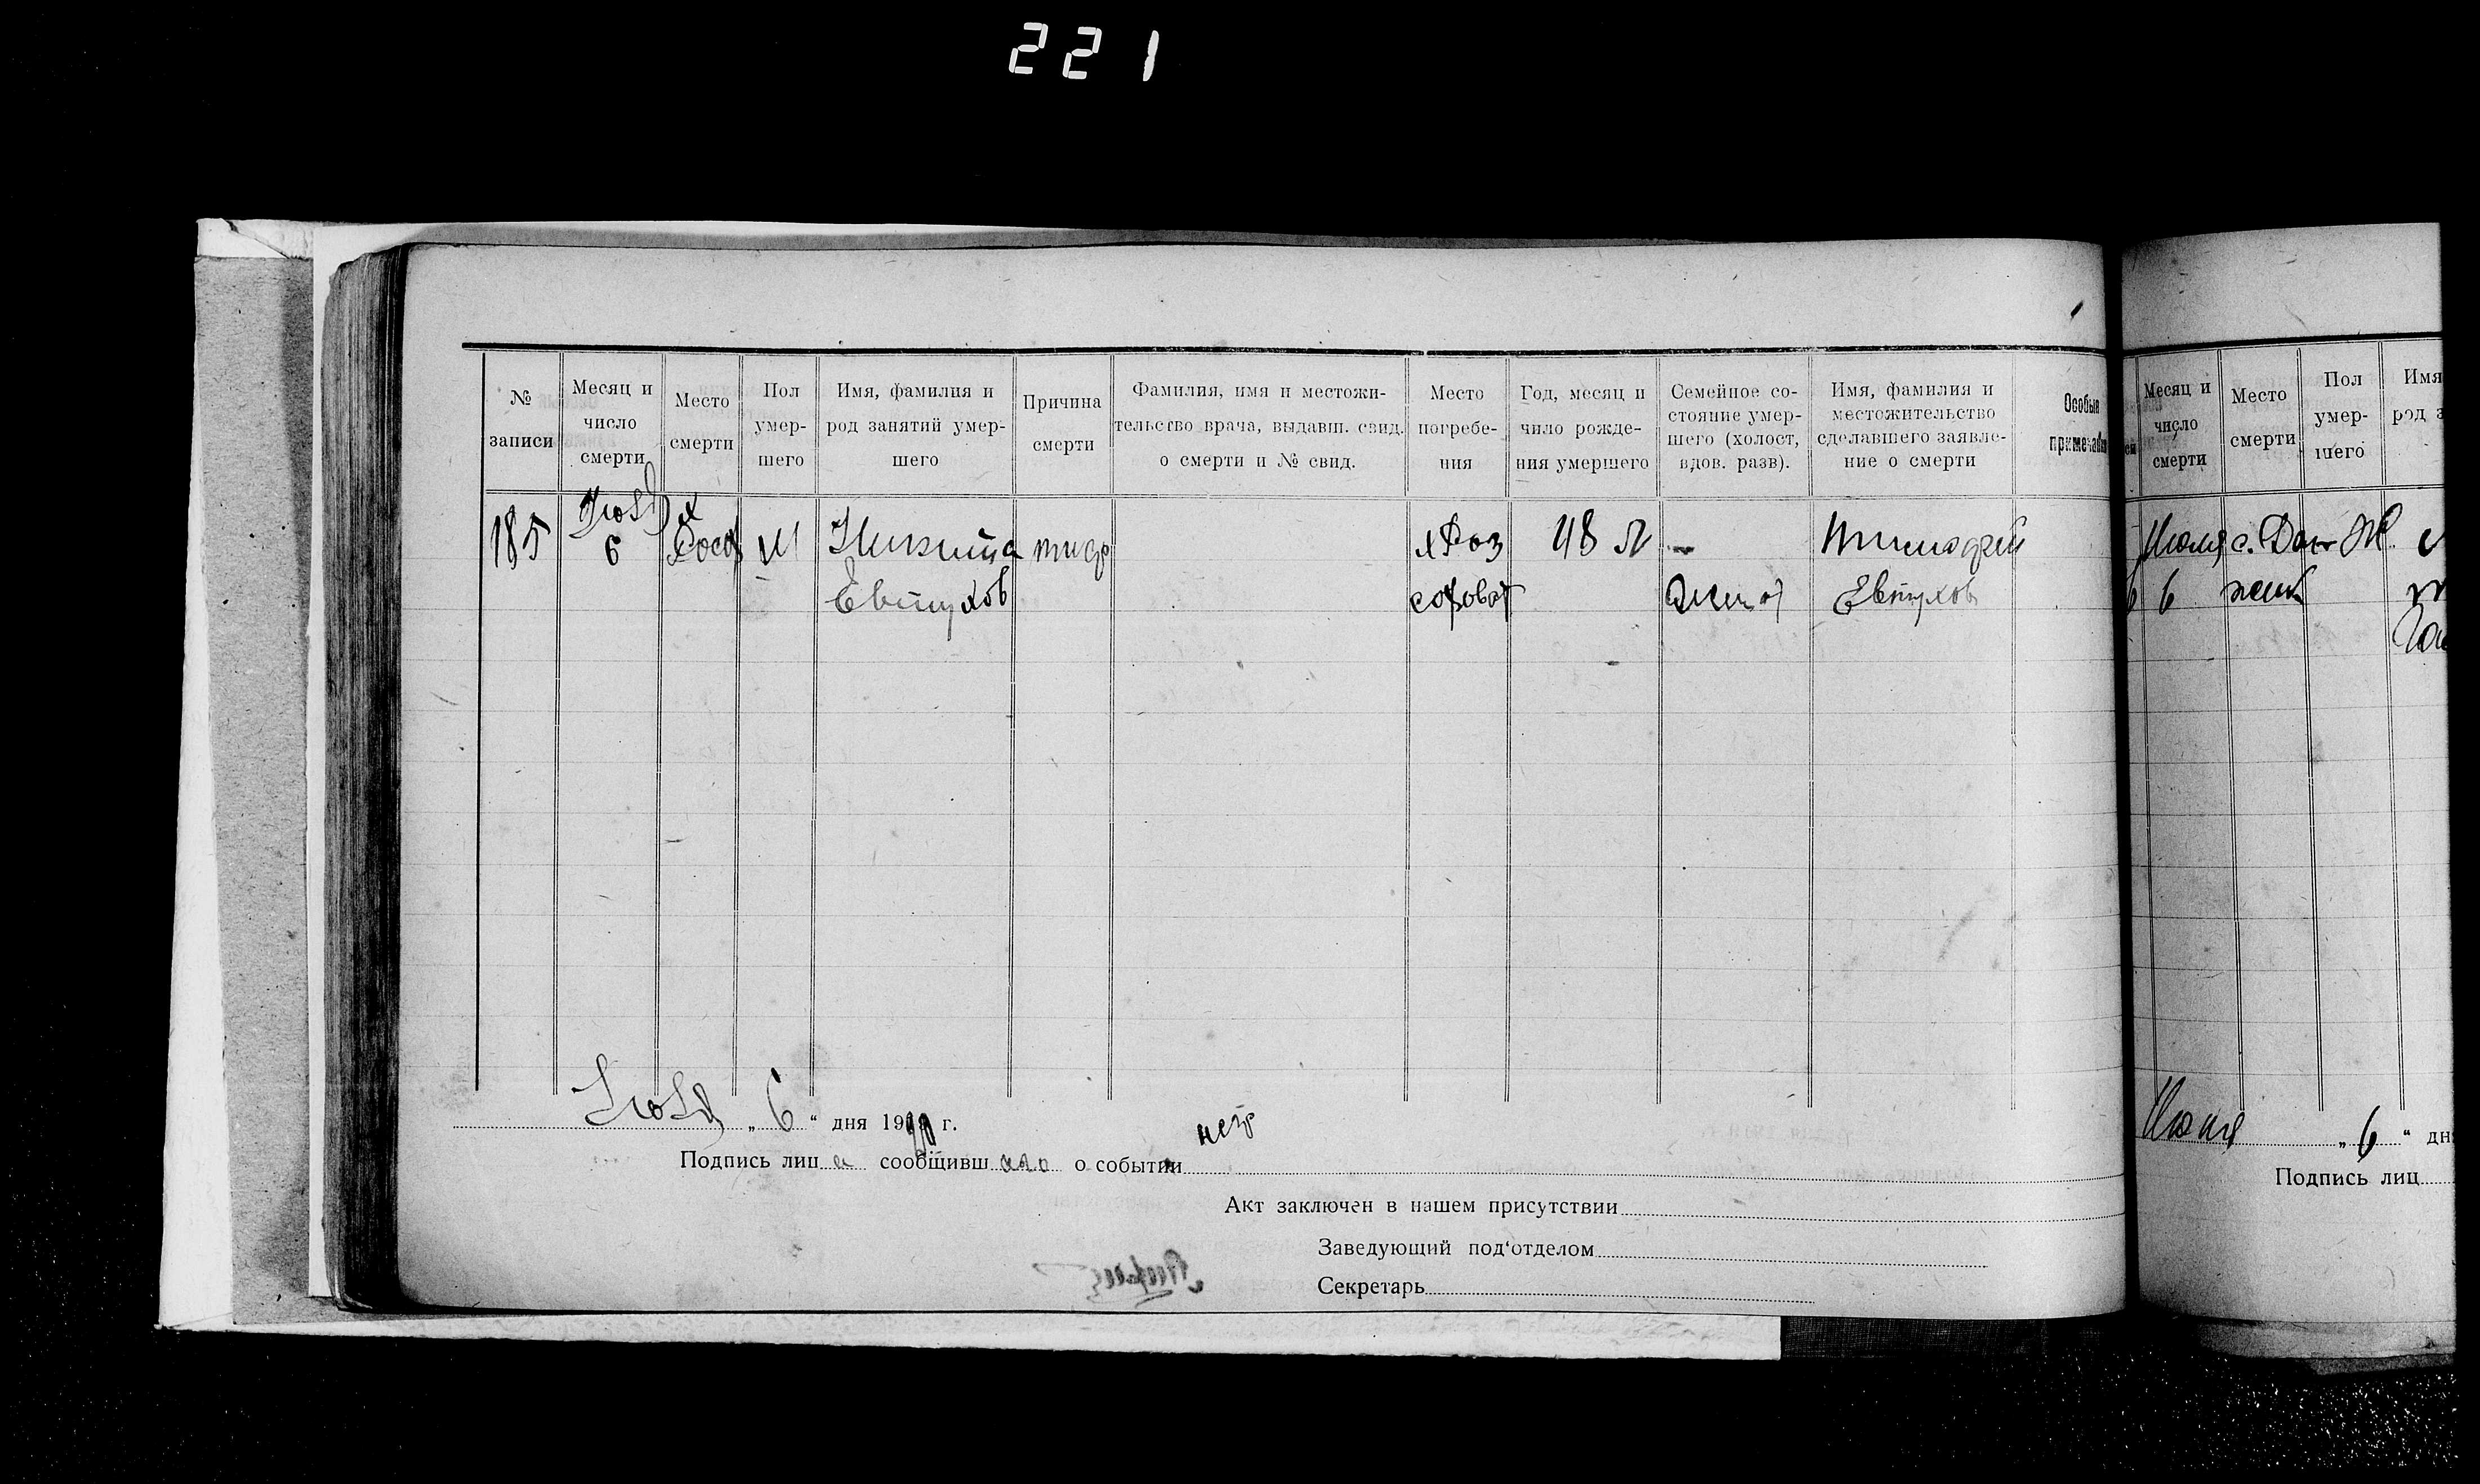 221
№ записи
Месяц и число смерти
Место смерти
Пол умершего
Имя, фамилия и род занятий умершего
Причина смерти
Фамилия, имя и местожительство врача, выдавш. свид. о смерти и № свид.
Место погребения
Год, месяц и чило рождения умершего
Семейное состояние умершего (холост, вдов. разв).
Имя, фамилия и местожительство сделавшего заявление о смерти
Особые
185
6
М
Никита
Евтухов
тиф
48 Л
Тимофей
Евтухов
"6" дня 19 г.
нет
Подпись лиц а сообщивш аго о событии
Акт заключен в нашем присутствии
Заведующий под'отделом
Секретарь
Месяц и число смерти
Место смерти
Пол умершего
Имя
род з
Июля с. Дол Ж
6
"6" дн
Подпись лиц